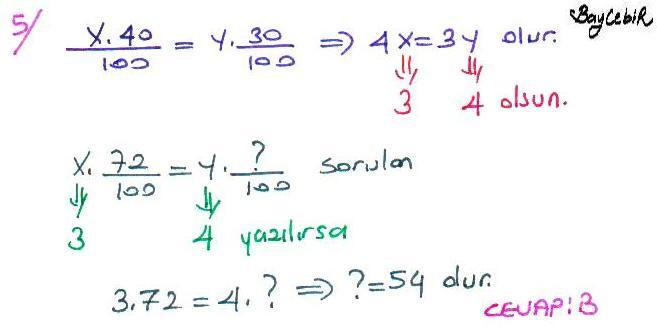 5/ X.40/100 = Y.30/100 ⇒ 4X=3Y olur. BayCebiR
⇓ ⇓
3 4 olsun.
X.72/100 = Y.?/100 sorulan
⇓ ⇓
3 4 yazılırsa
3.72 = 4.? ⇒ ?=54 olur.
CEVAP:B